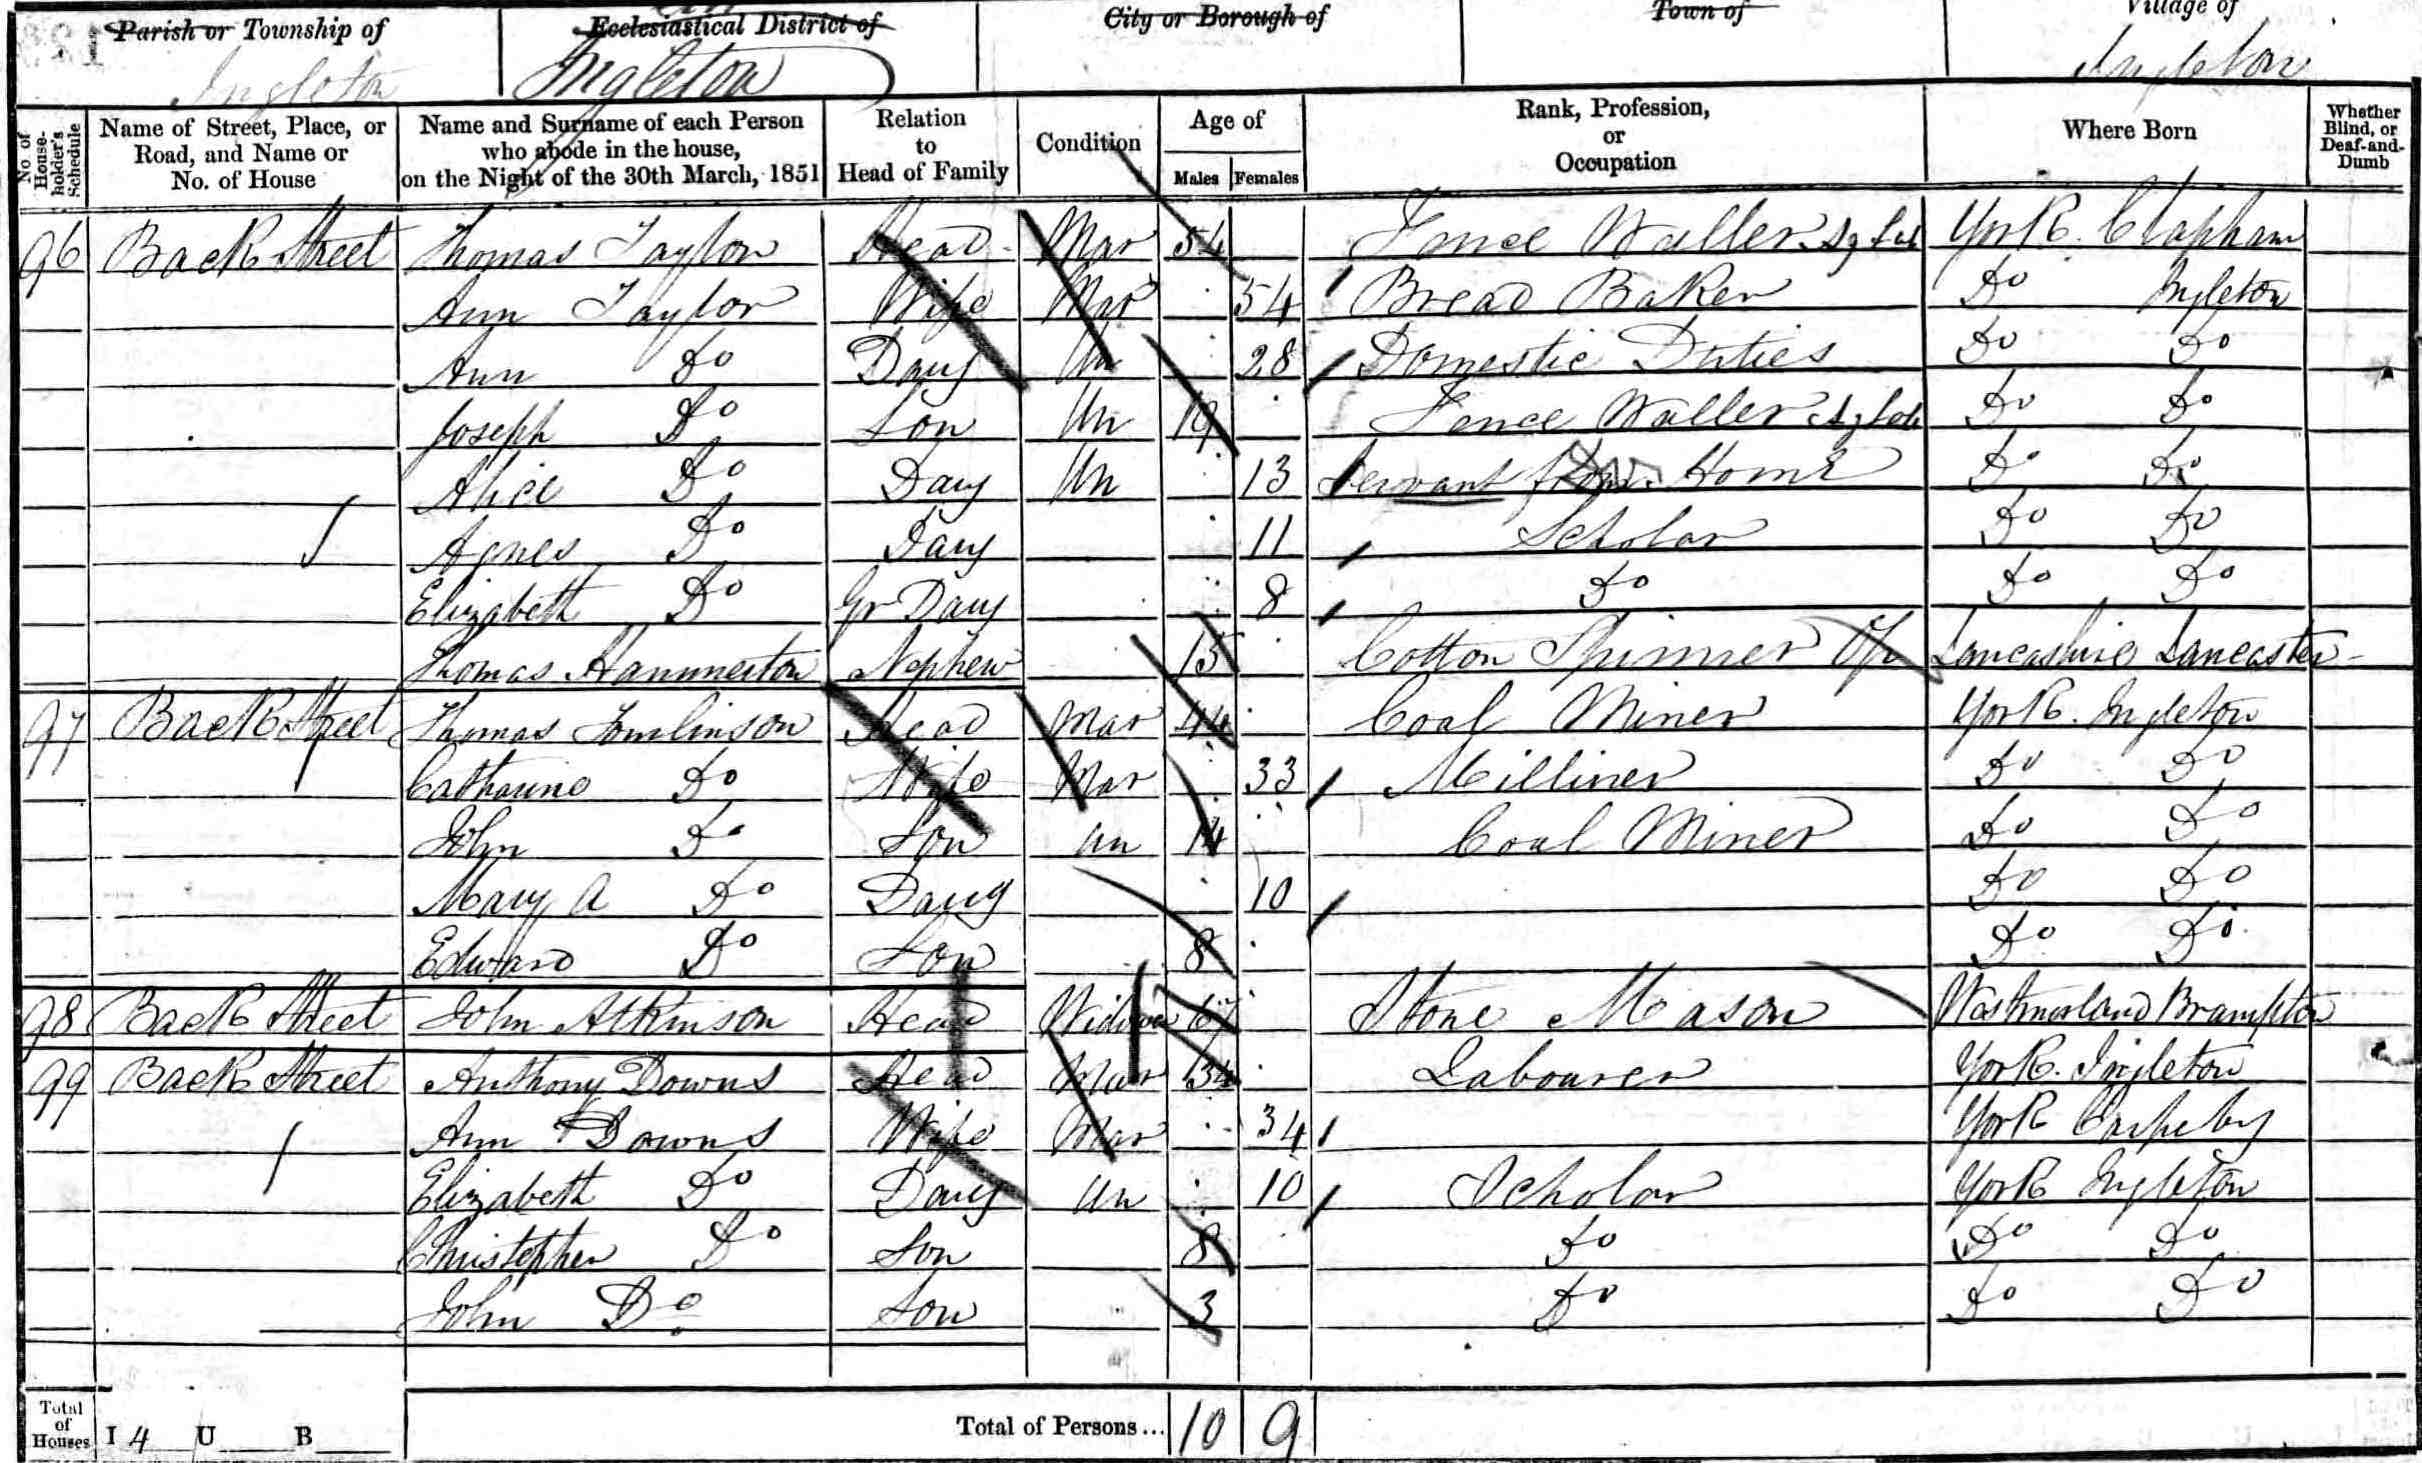 Parish or Township of Ecclesiastical District of City or Borough of Town of Village of
Ingleton Ingleton Ingleton
No. of House-holder's Schedule
Name of Street, Place, or Road, and Name or No. of House
Name and Surname of each Person who abode in the house, on the Night of the 30th March, 1851
Relation to Head of Family
Condition
Age of
Males Females
Rank, Profession, or Occupation
Where Born
Whether Blind, or Deaf-and-Dumb
96 Back Street Thomas Taylor Head Mar 54 Fence Waller York. Clapham
Ann Taylor Wife Mar 54 Bread Baker Do Ingleton
Ann Do Daug Un 28 Domestic Duties Do Do
Joseph Do Son Un 19 Fence Waller Do Do
Alice Do Daug Un 13 Servant from Home Do Do
Agnes Do Daug 11 Scholar Do Do
Elizabeth Do Gr Daug 8 Do Do Do
Thomas Hammerton Nephew 15 Cotton Spinner Lancashire Lancaster
97 Back Street Thomas Tomlinson Head Mar 44 Coal Miner York. Ingleton
Catharine Do Wife Mar 33 Milliner Do Do
John Do Son Un 14 Coal Miner Do Do
Mary A Do Daug 10 Do Do
Edward Do Son 8 Do Do
98 Back Street John Atkinson Head Widower Stone Mason Westmorland Brampton
99 Back Street Anthony Downs Head Mar 34 Labourer York. Ingleton
Ann Downs Wife Mar 34 York Carperby
Elizabeth Do Daug Un 10 Scholar York Ingleton
Christopher Do Son 8 Do Do Do
John Do Son 3 Do Do Do
Total of Houses I 4 U B Total of Persons... 10 9